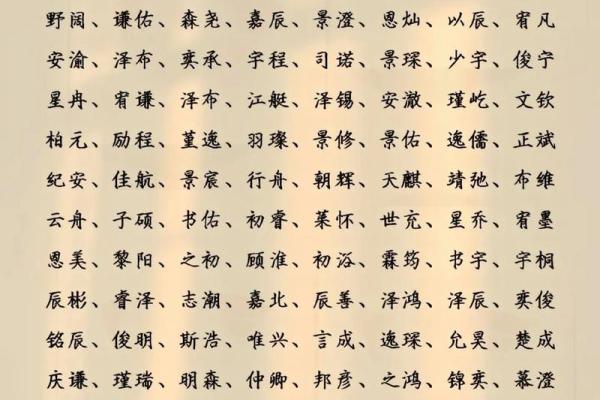 野阔、谦佑、森尧、嘉辰、景澄、恩灿、以辰、宥凡
安渝、泽布、奕承、宇程、司诺、景琛、少宇、俊宁
星冉、宥谦、泽布、江艇、泽锡、安澈、瑾屹、文钦
柏元、励程、堇逸、羽璨、景修、景佑、逸儒、正斌
纪安、佳航、景宸、行舟、朝辉、天麒、靖弛、布维
云舟、子硕、书佑、初睿、莱怀、世充、星乔、宥墨
恩美、黎阳、之初、顾淮、初浴、霖筠、书宇、宇桐
辰彬、睿泽、志潮、嘉北、辰善、泽鸿、泽辰、奕俊
铭辰、俊明、斯浩、唯兴、言成、逸琛、允昊、楚成
庆谦、瑾瑞、明森、仲卿、邦彦、之鸿、锦奕、慕澄